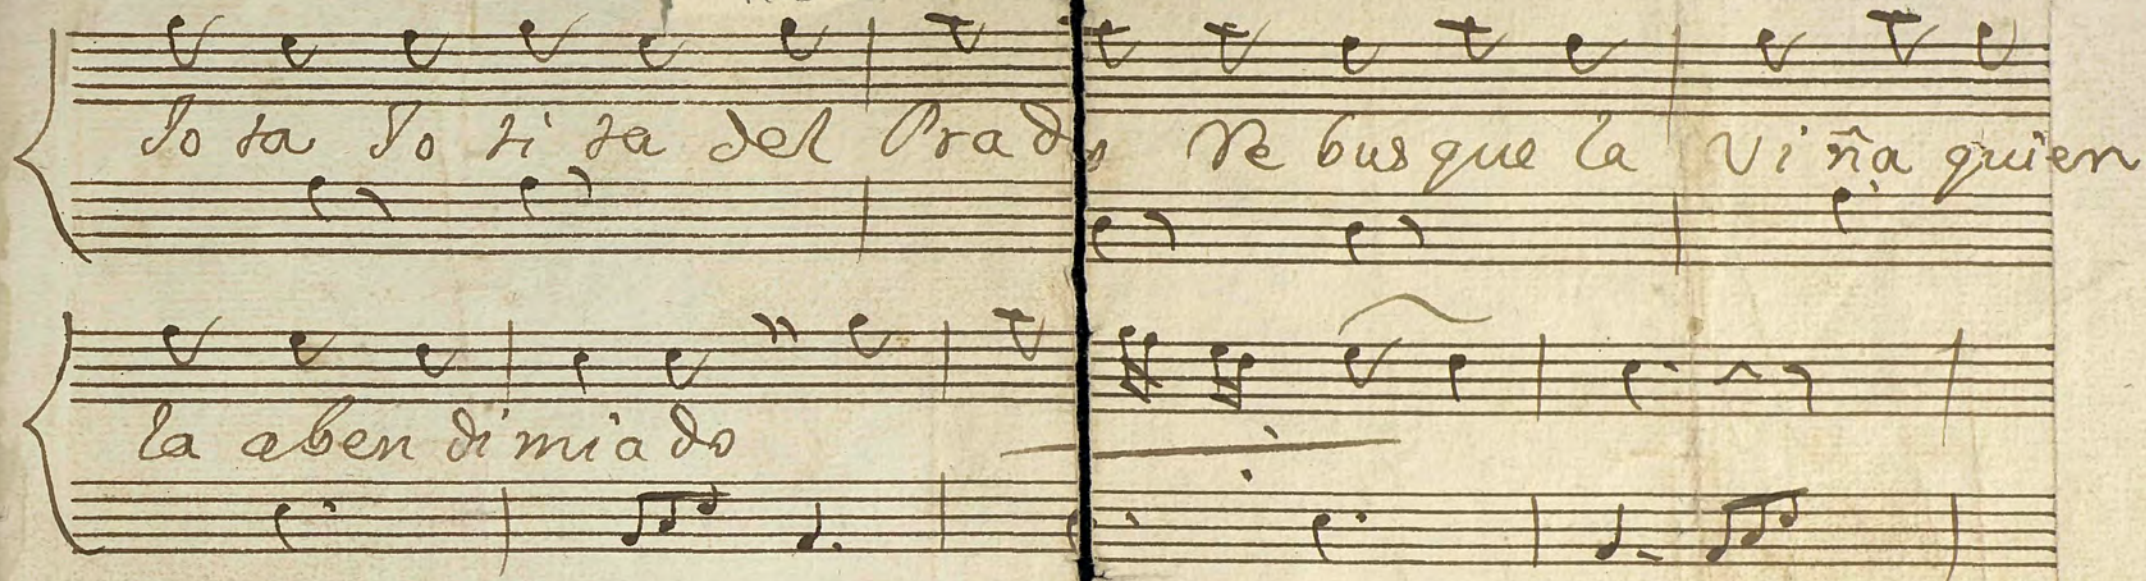 Jo ta Jo ti ta del Prado Re busque la Vi ña quien
la aben di mia do